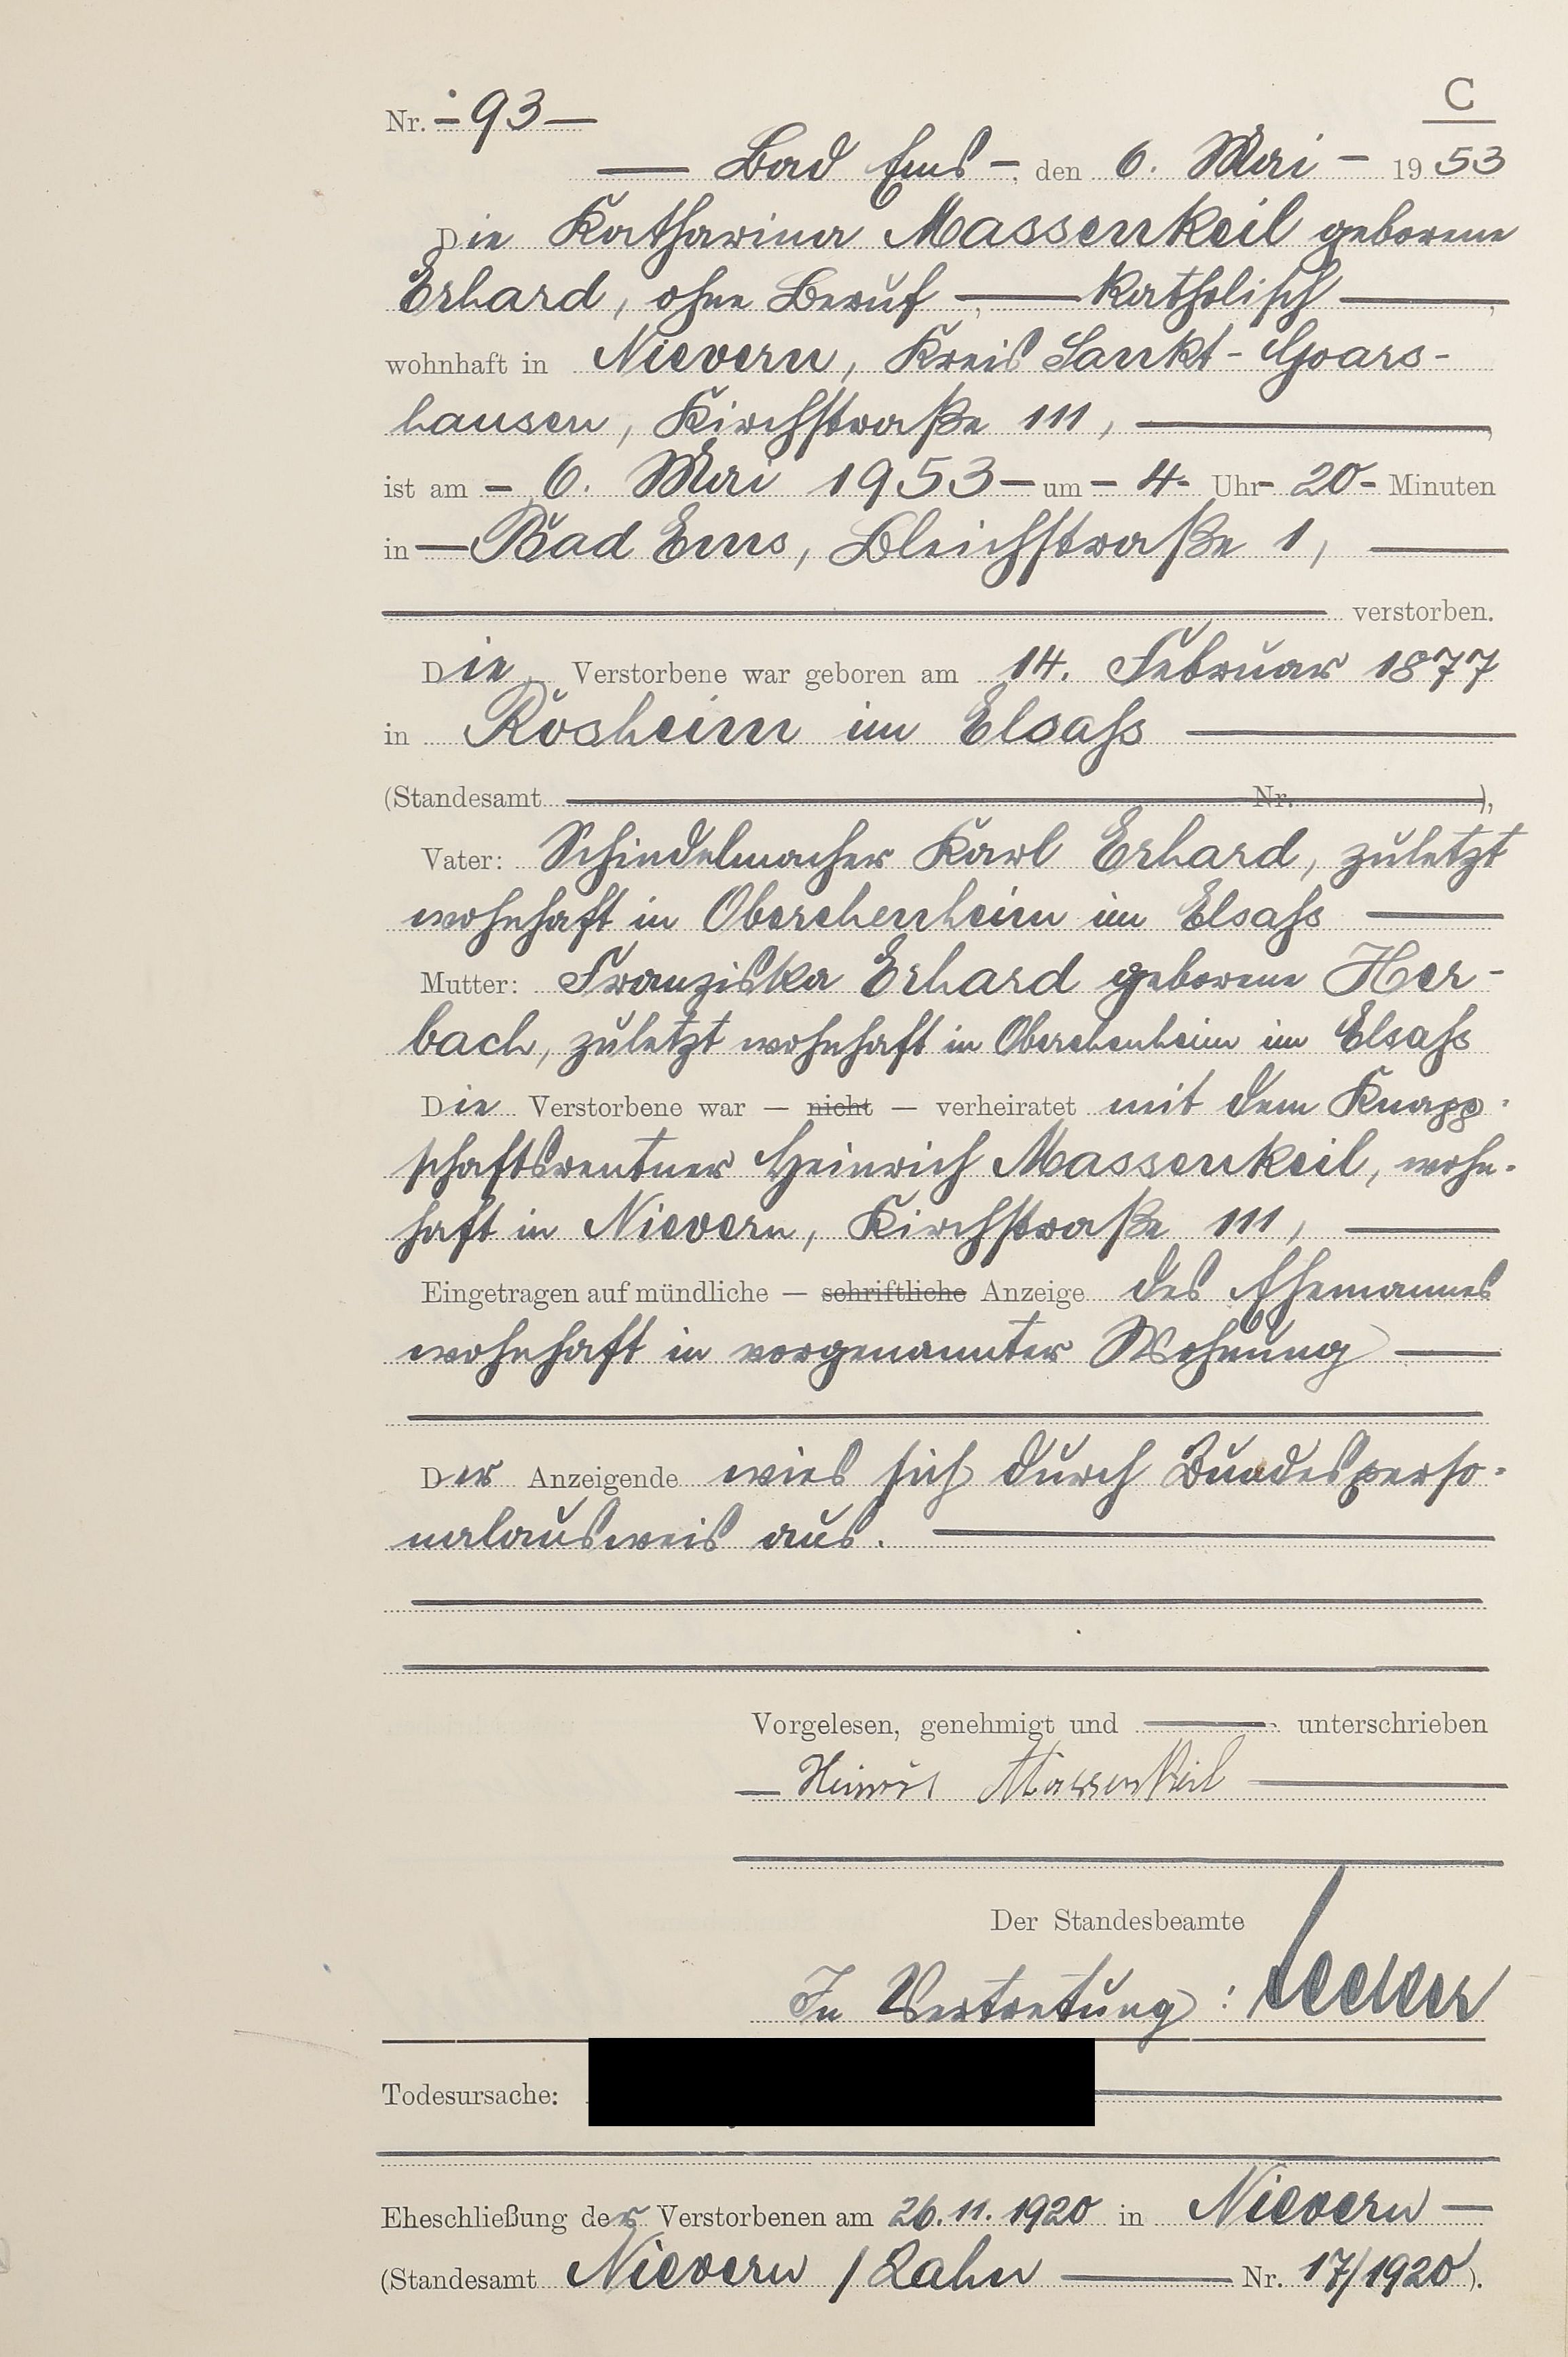 C
Nr. - 93 -
- Bad Ems -, den 6. Mai - 1953
Die Katharina Massenkeil geborene
Erhard, ohne Beruf -, - katholisch -,
wohnhaft in Nievern, Kreis Sankt-Goars-
hausen, Kirchstraße 111, -,
ist am - 6. Mai 1953 - um - 4 - Uhr - 20 - Minuten
in - Bad Ems, Bleichstraße 1, -
verstorben.
Die Verstorbene war geboren am 14. Februar 1877
in Rosheim im Elsaß -
(Standesamt - Nr. - ),
Vater: Schindelmacher Karl Erhard, zuletzt
wohnhaft in Oberehenheim im Elsaß -
Mutter: Franziska Erhard geborene Her-
bach, zuletzt wohnhaft in Oberehenheim im Elsaß
Die Verstorbene war — nicht — verheiratet mit dem Knapp-
schaftsrentner Heinrich Massenkeil, wohn-
haft in Nievern, Kirchstraße 111, -
Eingetragen auf mündliche — schriftliche Anzeige des Ehemannes
wohnhaft in vorgenannter Wohnung -
Der Anzeigende wies sich durch Bundesperso-
nalausweis aus. -
Vorgelesen, genehmigt und - unterschrieben
- Heinrich Massenkeil -
Der Standesbeamte
In Vertretung:
Todesursache:
Eheschließung der Verstorbenen am 26.11.1920 in Nievern -
(Standesamt Nievern / Lahn - Nr. 17/1920).